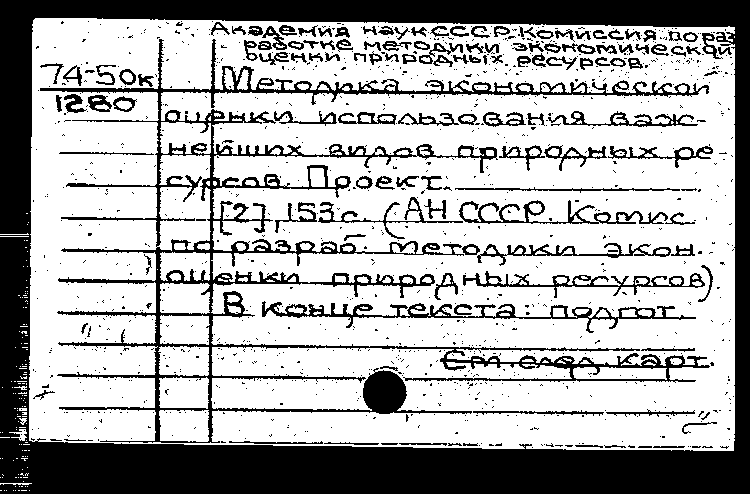 Академия наук СССР. Комиссия по раз
работке методики экономической
оценки природных ресурсов.
74-50к
1280
Методика экономической
оценки использования важ-
нейших видов природных ре-
сурсов. Проект.
[2], 153 с. (АН СССР. Комис
по разраб. методики экон.
оценки природных ресурсов)
В конце текста: подгот.
См. след. карт.